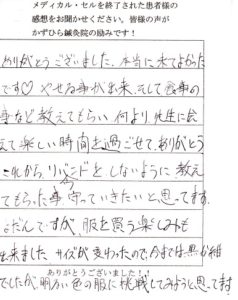 メディカル・セルを終了された患者様の
感想をお聞かせください。皆様の声が
かずひら鍼灸院の励みです!
ありがとうございました。本当に来てよかった
です♡ やせる事が出来、そして食事の
事など教えてもらい 何より 先生に会
えて楽しい時間を過ごせて、ありがとう
これから、リバウンドをしないように 教え
てもらった事 守っていきたいと思ってます。
まだですが、服を買う楽しみも
出来ました サイズが変わったので、今までは黒か紺
でしたが、明るい色の服に挑戦してみようと思ってます
ありがとうございました!!